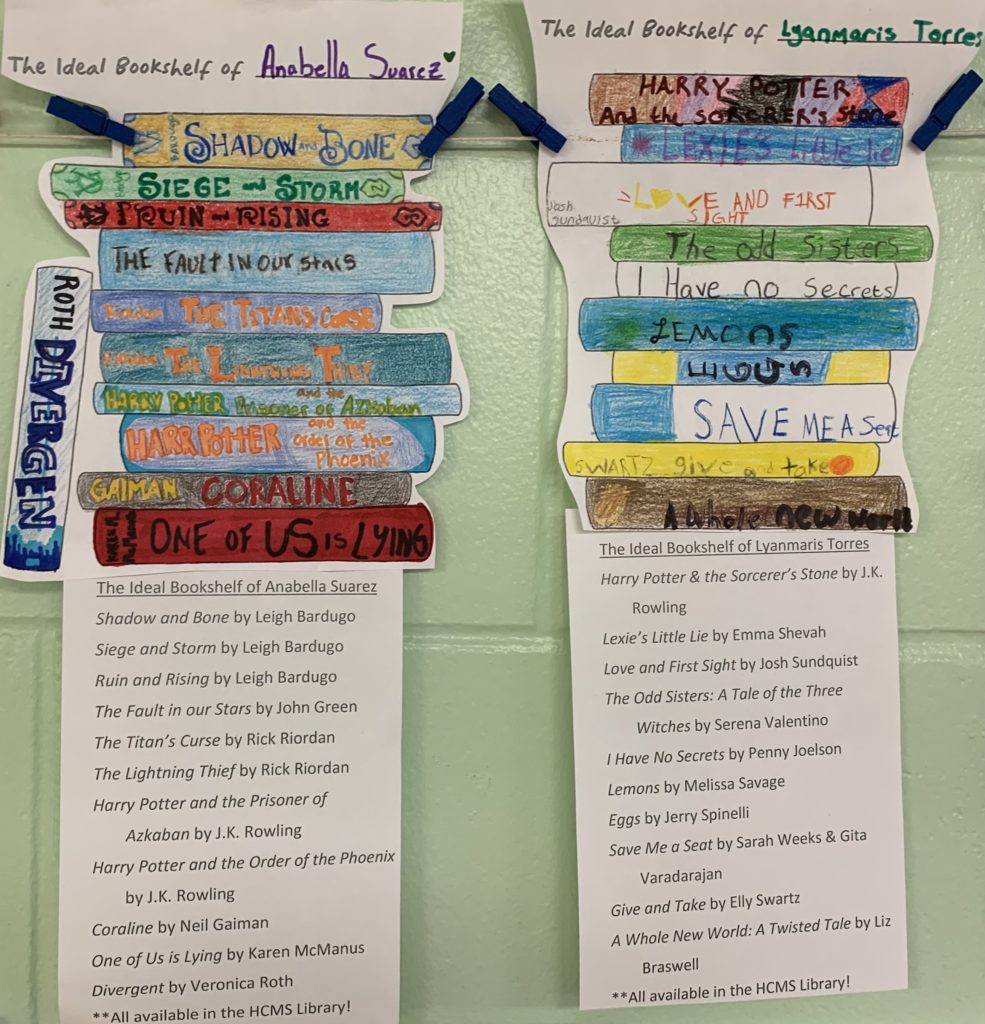 The Ideal Bookshelf of Anabella Suarez
SHADOW AND BONE
SIEGE and STORM
RUIN and RISING
THE FAULT IN OUR STARS
THE TITANS CURSE
THE LIGHTNING THIEF
HARRY POTTER and the
Prisoner of Azkaban
HARRPOTTER and the
Order of the
Phoenix
GAIMAN CORALINE
KAREN M. McManus ONE OF US IS LYING
ROTH DIVERGEN
The Ideal Bookshelf of Anabella Suarez
Shadow and Bone by Leigh Bardugo
Siege and Storm by Leigh Bardugo
Ruin and Rising by Leigh Bardugo
The Fault in our Stars by John Green
The Titan's Curse by Rick Riordan
The Lightning Thief by Rick Riordan
Harry Potter and the Prisoner of
Azkaban by J.K. Rowling
Harry Potter and the Order of the Phoenix
by J.K. Rowling
Coraline by Neil Gaiman
One of Us is Lying by Karen McManus
Divergent by Veronica Roth
**All available in the HCMS Library!
The Ideal Bookshelf of Lyanmaris Torres
HARRY POTTER
And the SORCERER'S Stone
LEXIE'S Little lie
Josh
Sundquist
LOVE AND F1RST
SIGHT
The odd Sisters
I Have no Secrets
LEMONS
EGGS
SAVE ME A Seat
SWARTZ give and take
A Whole new World
The Ideal Bookshelf of Lyanmaris Torres
Harry Potter & the Sorcerer's Stone by J.K.
Rowling
Lexie's Little Lie by Emma Shevah
Love and First Sight by Josh Sundquist
The Odd Sisters: A Tale of the Three
Witches by Serena Valentino
I Have No Secrets by Penny Joelson
Lemons by Melissa Savage
Eggs by Jerry Spinelli
Save Me a Seat by Sarah Weeks & Gita
Varadarajan
Give and Take by Elly Swartz
A Whole New World: A Twisted Tale by Liz
Braswell
**All available in the HCMS Library!